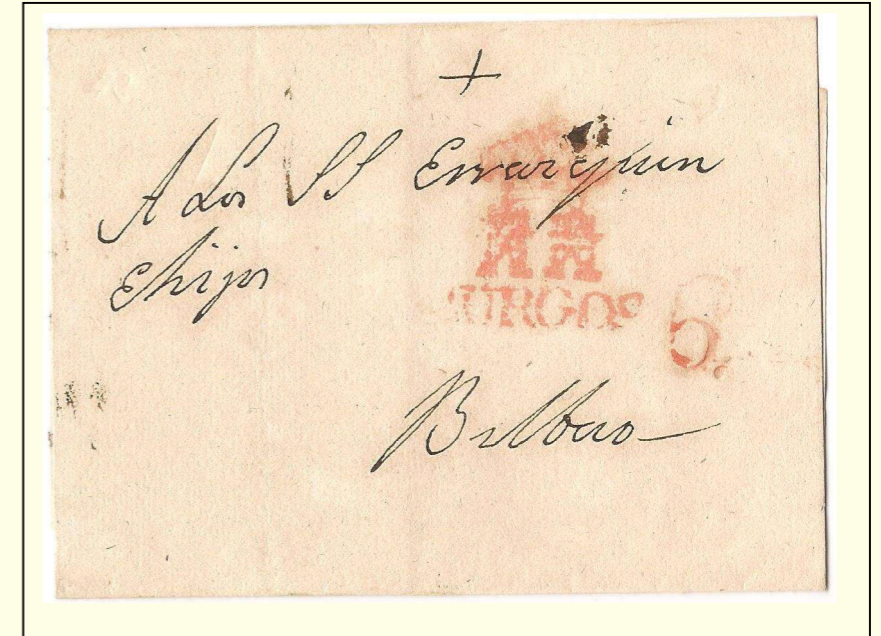 +
A Los SS Errarquin
Ehijos
BURGOS
6
Bilbao